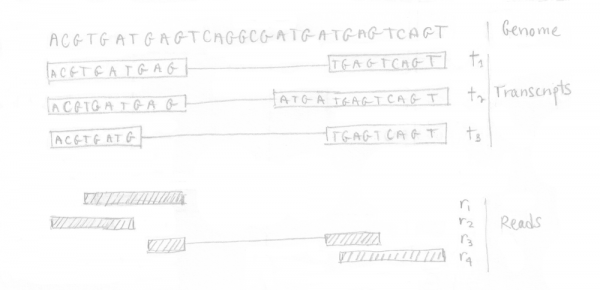 ACGTGATGAGTCAGGCGATGATGAGTCAGT Genome
ACGTGATGAG TGAGTCAGT t1
ACGTGATGAG ATGATGAGTCAGT t2 Transcripts
ACGTGATG TGAGTCAGT t3
r1
r2 Reads
r3
r4